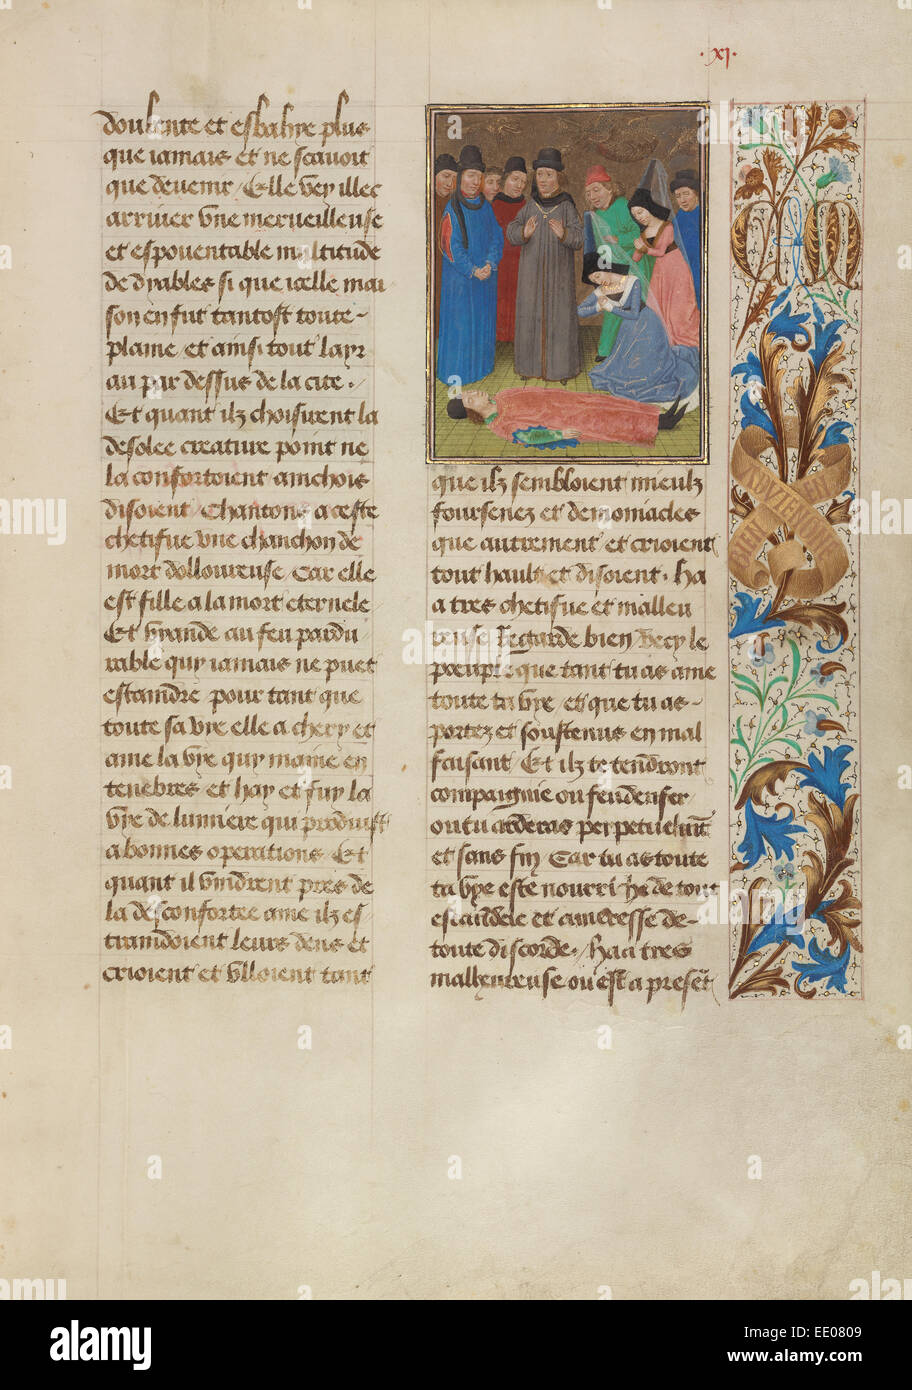 ·xj·
doulente et esbahye plus
que iamais et ne scauoit
que deuenir / Elle vey illec
arriuer vne merueilleuse
et espouentable multitude
de dyables si que icelle mai
son en fut tantost toute
plaine et ainsi tout layr
au par dessus de la cite.
Et quant ilz choisirent la
desolee creature point ne
la confortoient ainchois
disoient / Chantons a ceste
chetifue vne chanchon de
mort dolloureuse / Car elle
est fille a la mort eternele
Et viande au feu pardu
rable quy iamais ne puet
estaindre pour tant que
toute sa vye elle a chery et
ame la vye quy maine en
tenebres et hay et fuy la
vye de lumiere qui produist
a bonnes operations / Et
quant il vindrent pres de
la desconfortee ame ilz es
traindoient leurs dens et
crioient et vlloient tant
que ilz sembloient mieulz
foursenez et demoniacles
que autrement et crioient
tout hault et disoient. Ha
a tres chetifue et malleu
reuse Regarde bien Vecy le
poeuple que tant tu as ame
toute ta vye et que tu as
portez et soustenus en mal
faisant / Et ilz te tendront
compaignie ou feu denfer
ou tu arderas perpetuelmt
et sans fin Car tu as toute
ta vye este nourriche de tout
escandele et ameresse de
toute discorde. Ha a tres
malheureuse ou est a presēt
alamy stock photo
EE0809
www.alamy.com